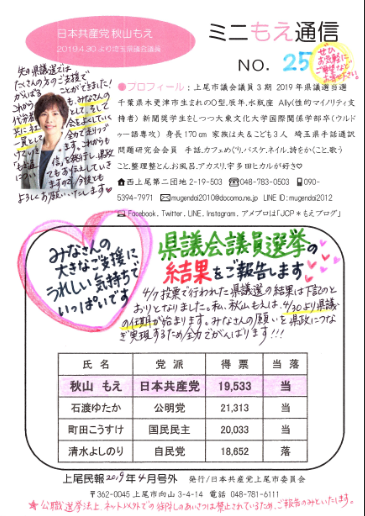 日本共産党 秋山もえ
2019.4.30より埼玉県議会議員
ミニもえ通信
NO. 25
ぜひ、
お気軽に
お寄せ下さい
知の県議選では
たくさんの方のご支援で
ことができました!
みなさんの
代弁者として、そして
共に
一員として
全力で走りつ
これからも
県政
よろしくお願いいたします
●プロフィール:上尾市議会議員3期 2019年県議選当選
千葉県木更津市生まれのO型、辰年、水瓶座 Ally(性的マイノリティ支
持者) 新聞奨学生をしつつ大東文化大学国際関係学部卒(ウルド
ゥー語専攻) 身長170cm 家族は夫&こども3人 埼玉県手話通訳
問題研究会会員 手話、カフェめぐり、バスケ、ネイル、詩をかくこと、歌う
こと、整理整とん、お風呂、アカスリ、宇多田ヒカルが好き♡
西上尾第二団地2-19-503 048-783-0503 090-
5394-7971 mugendai2010@docomo.ne.jp LINE ID:mugendai2012
Facebook、Twitter、LINE、Instagram、アメブロは「JCP*もえブログ」
みなさんの
大きなご支援に
うれしい気持ちで
いっぱいです
県議会議員選挙の
結果をご報告します
4/7投票で行われた県議選の結果は下記のと
おりとなりました。私、秋山もえは、4/30より県議
の任期が始まります。みなさんの願いを県政につな
ぎ実現するため全力でがんばります!!!
氏 名 党 派 得 票 当 落
秋山 もえ 日本共産党 19,533 当
石渡ゆたか 公明党 21,313 当
町田こうすけ 国民民主 20,033 当
清水よしのり 自民党 18,652 落
上尾民報2019年4月号外 発行/日本共産党上尾市委員会
〒362-0045 上尾市向山3-4-14 電話 048-781-6111
★公職選挙法上 ネット以外での当選のあいさつは禁止されているため、ご報告のみといたします。